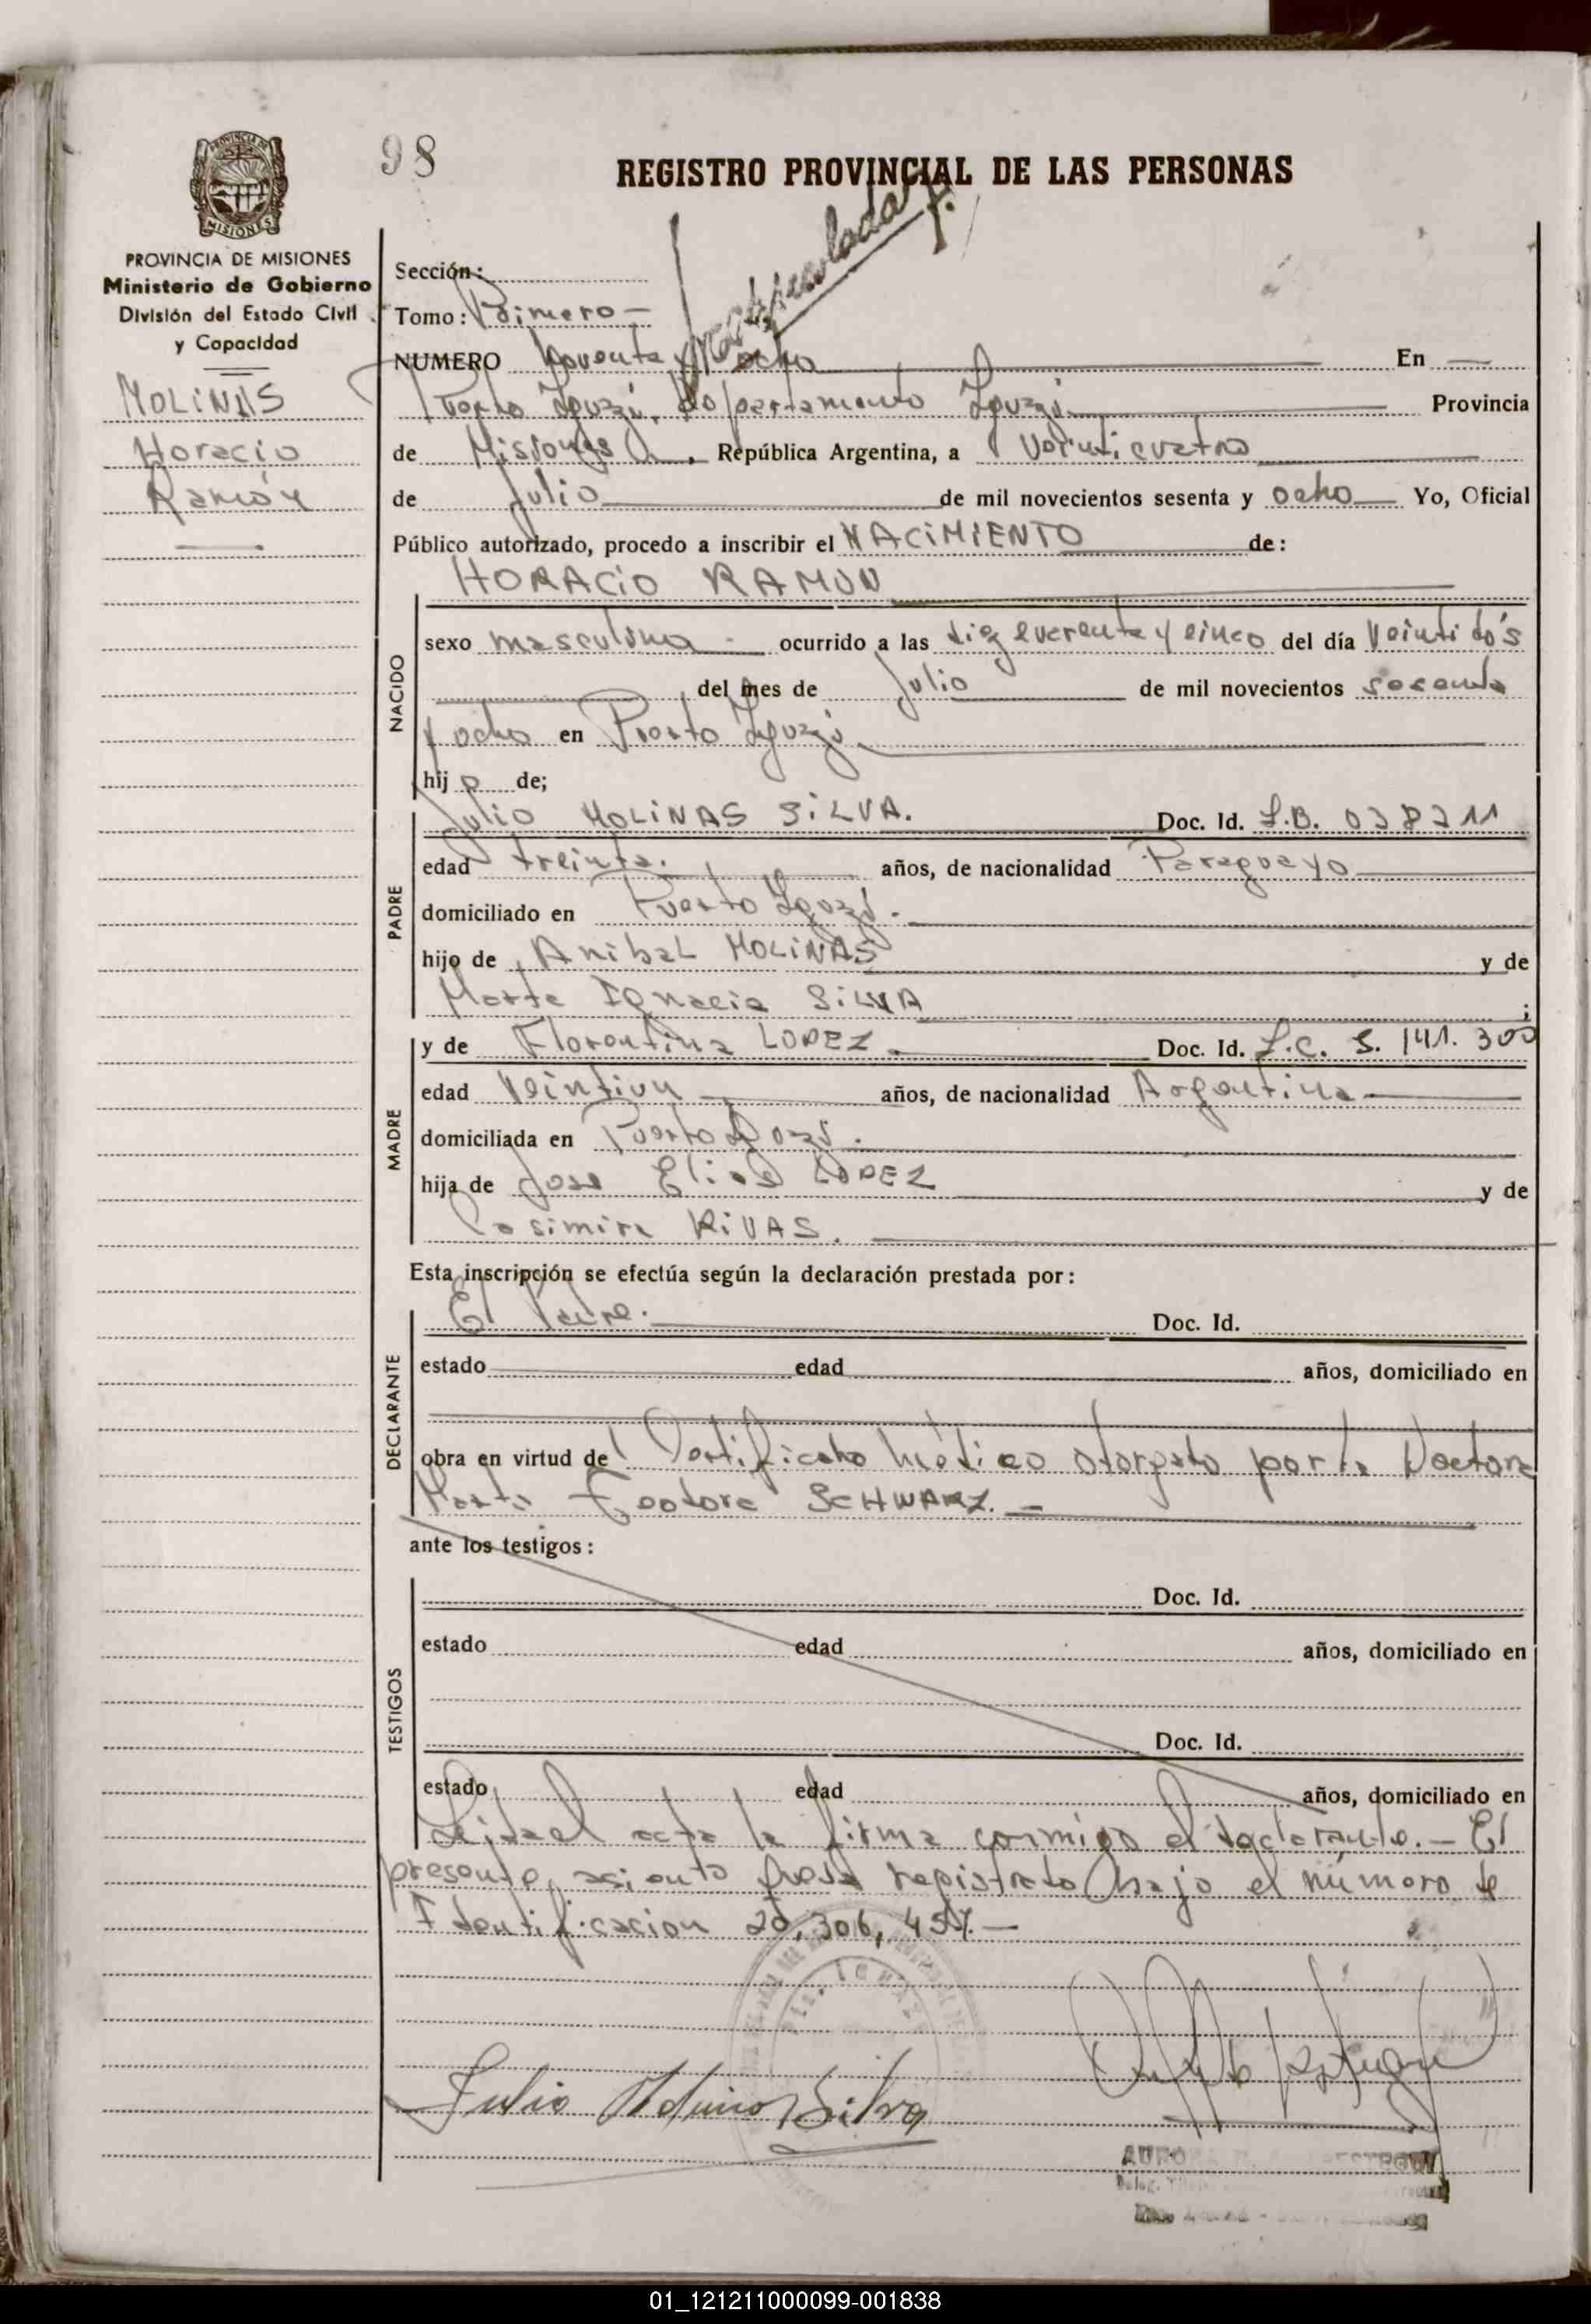 98
REGISTRO PROVINCIAL DE LAS PERSONAS
PROVINCIA DE
MISIONES
PROVINCIA DE MISIONES
Ministerio de Gobierno
División del Estado Civil
y Capacidad
MOLINAS
Horacio
Ramón
Sección:
Tomo: Primero
NUMERO Noventa y ocho En
Puerto Iguazú, Departamento Iguazú Provincia
de Misiones, República Argentina, a Veinticuatro
de Julio de mil novecientos sesenta y ocho Yo, Oficial
Público autorizado, procedo a inscribir el NACIMIENTO de:
HORACIO RAMON
NACIDO
sexo masculino ocurrido a las diez cuarenta y cinco del día Veintidós
del mes de Julio de mil novecientos sesenta
y ocho en Puerto Iguazú
hijo de;
PADRE
Julio MOLINAS SILVA. Doc. Id.
edad treinta. años, de nacionalidad Paraguayo
domiciliado en Puerto Iguazú.
hijo de Anibal MOLINAS y de
Marta Ignacia SILVA ;
MADRE
y de Florentina LOPEZ Doc. Id. L.C. 5.141.300
edad Veintiun años, de nacionalidad Argentina
domiciliada en Puerto Iguazú.
hija de Jose Elias LOPEZ y de
Casimira RIVAS.
Esta inscripción se efectúa según la declaración prestada por:
DECLARANTE
El Padre. Doc. Id.
estado edad años, domiciliado en
obra en virtud de Certificado Médico otorgado por la Doctora
Marta Teodora SCHWARZ.
ante los testigos:
TESTIGOS
Doc. Id.
estado edad años, domiciliado en
Doc. Id.
estado edad años, domiciliado en
Leida el acta la firma conmigo el declarante. — El
presente asiento queda registrado bajo el número de
Identificacion 20,306,457. —
Julio Molinas Silva
AURORA
01_121211000099-001838